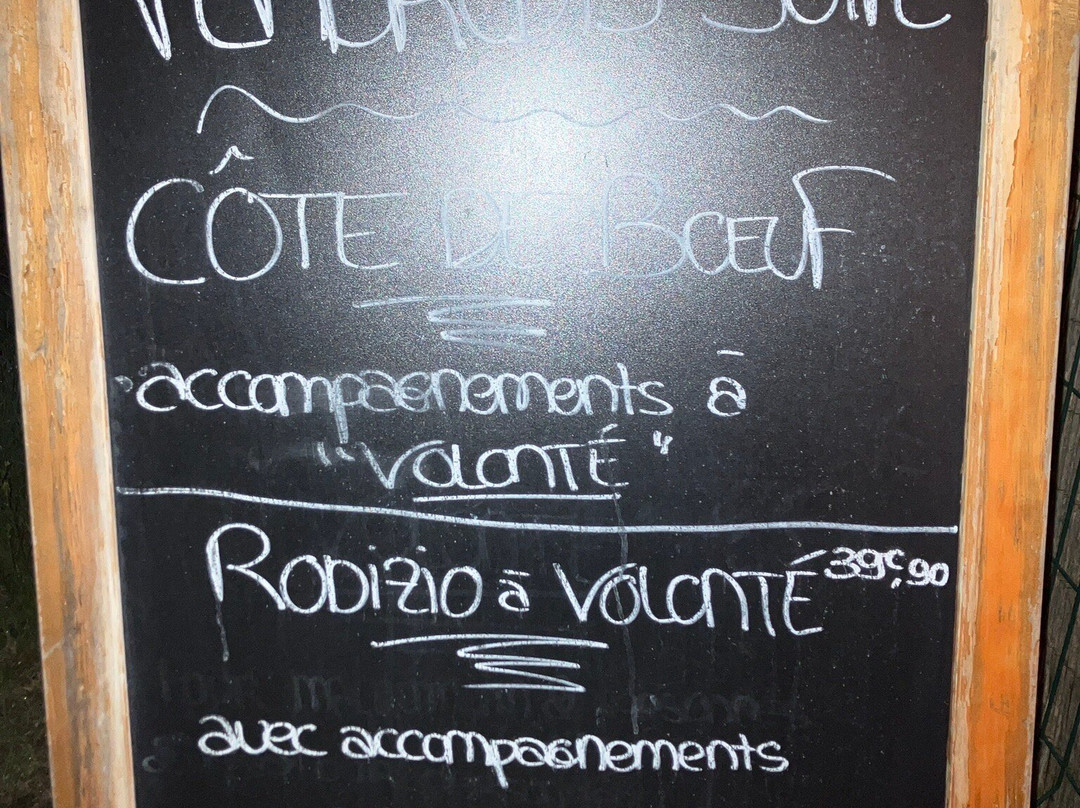 VENDREDIS SOIR
CÔTE DE BŒUF
accompagnements à
"VOLONTÉ"
RODIZIO à VOLONTÉ 39€,90
avec accompagnements